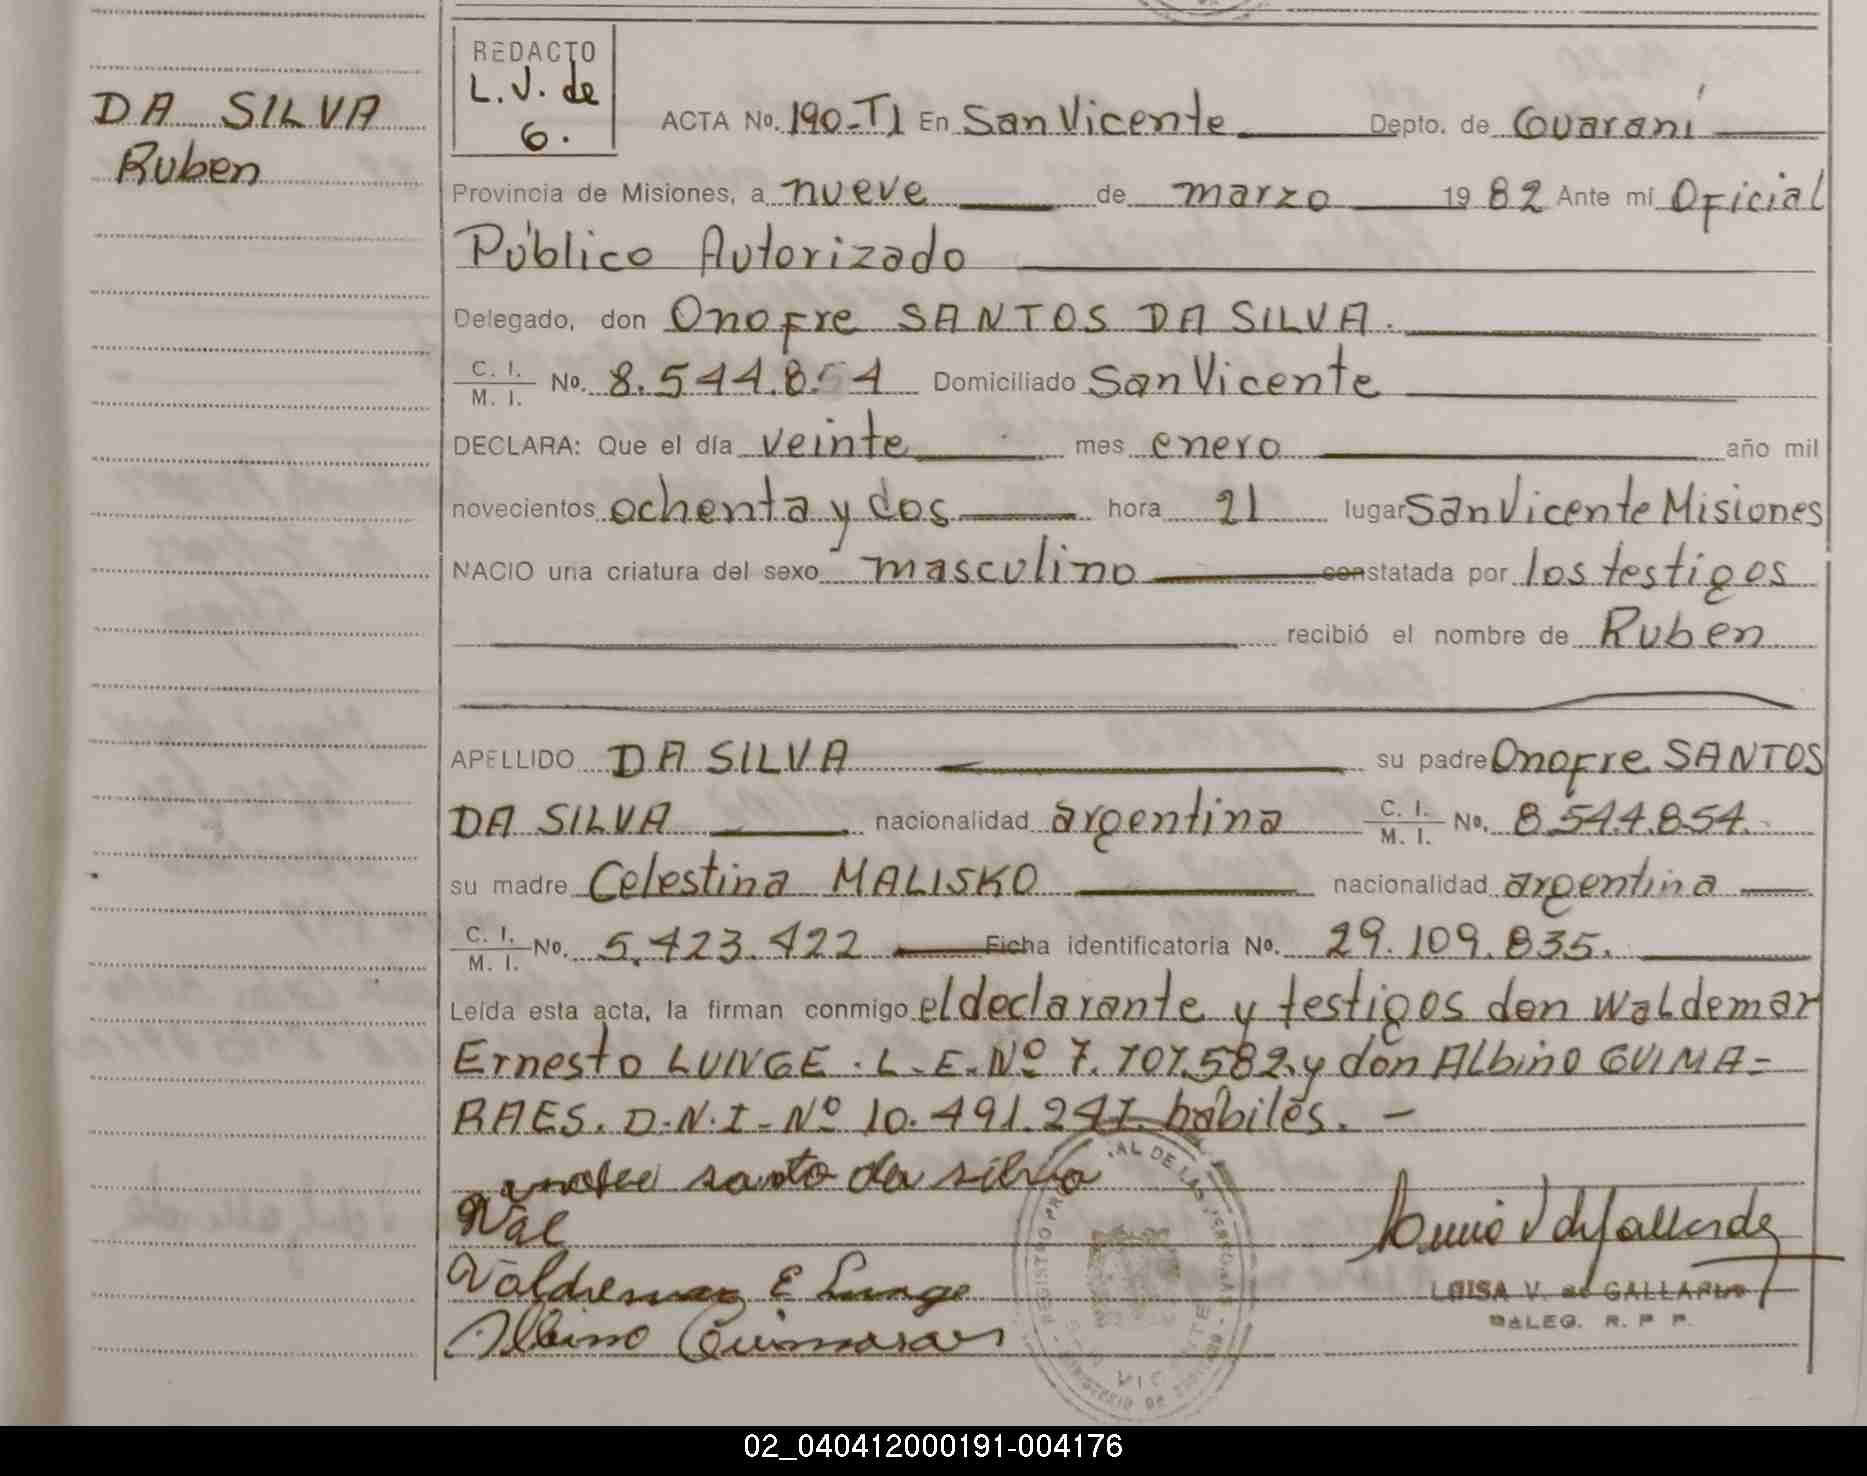 DA SILVA
Ruben
REDACTO
L.V. de
G.
ACTA No. 190-T1 En San Vicente Depto. de Guaraní
Provincia de Misiones, a nueve de marzo 1982 Ante mí Oficial
Público Autorizado
Delegado, don Onofre SANTOS DA SILVA.
C. I. / M. I. No. 8.544.854 Domiciliado San Vicente
DECLARA: Que el día veinte mes enero año mil
novecientos ochenta y dos hora 21 lugar San Vicente Misiones
NACIO una criatura del sexo masculino constatada por los testigos
recibió el nombre de Ruben
APELLIDO DA SILVA su padre Onofre SANTOS
DA SILVA nacionalidad argentina C. I. / M. I. No. 8.544.854.
su madre Celestina MALISKO nacionalidad argentina
C. I. / M. I. No. 5.423.422 Ficha identificatoria No. 29.109.835.
Leída esta acta, la firman conmigo el declarante y testigos don Waldemar
Ernesto LUNGE. L.E. Nº 7.707.582. y don Albino GUIMA=
RAES. D.N.I. Nº 10.491.247. habiles. -
santo da silva
Wal
Valdemar E Lunge
Albino Guimaraes
LUISA V. de GALLARDO
DALEG. R. P. P.
02_040412000191-004176